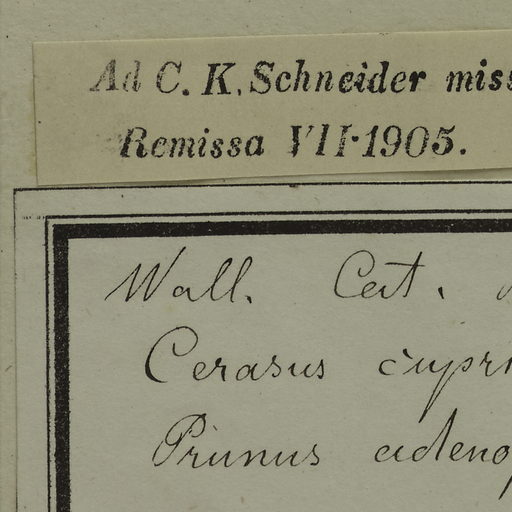 Ad C. K. Schneider miss
Remissa VII·1905.
Wall. Cat.
Cerasus
Prunus